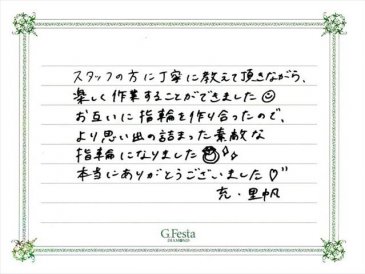 スタッフの方に丁寧に教えて頂きながら、
楽しく作業することができました
お互いに指輪を作り合ったので、
より思い出の詰まった素敵な
指輪になりました
本当にありがとうございました♡
充・里帆
G.Festa
DIAMOND